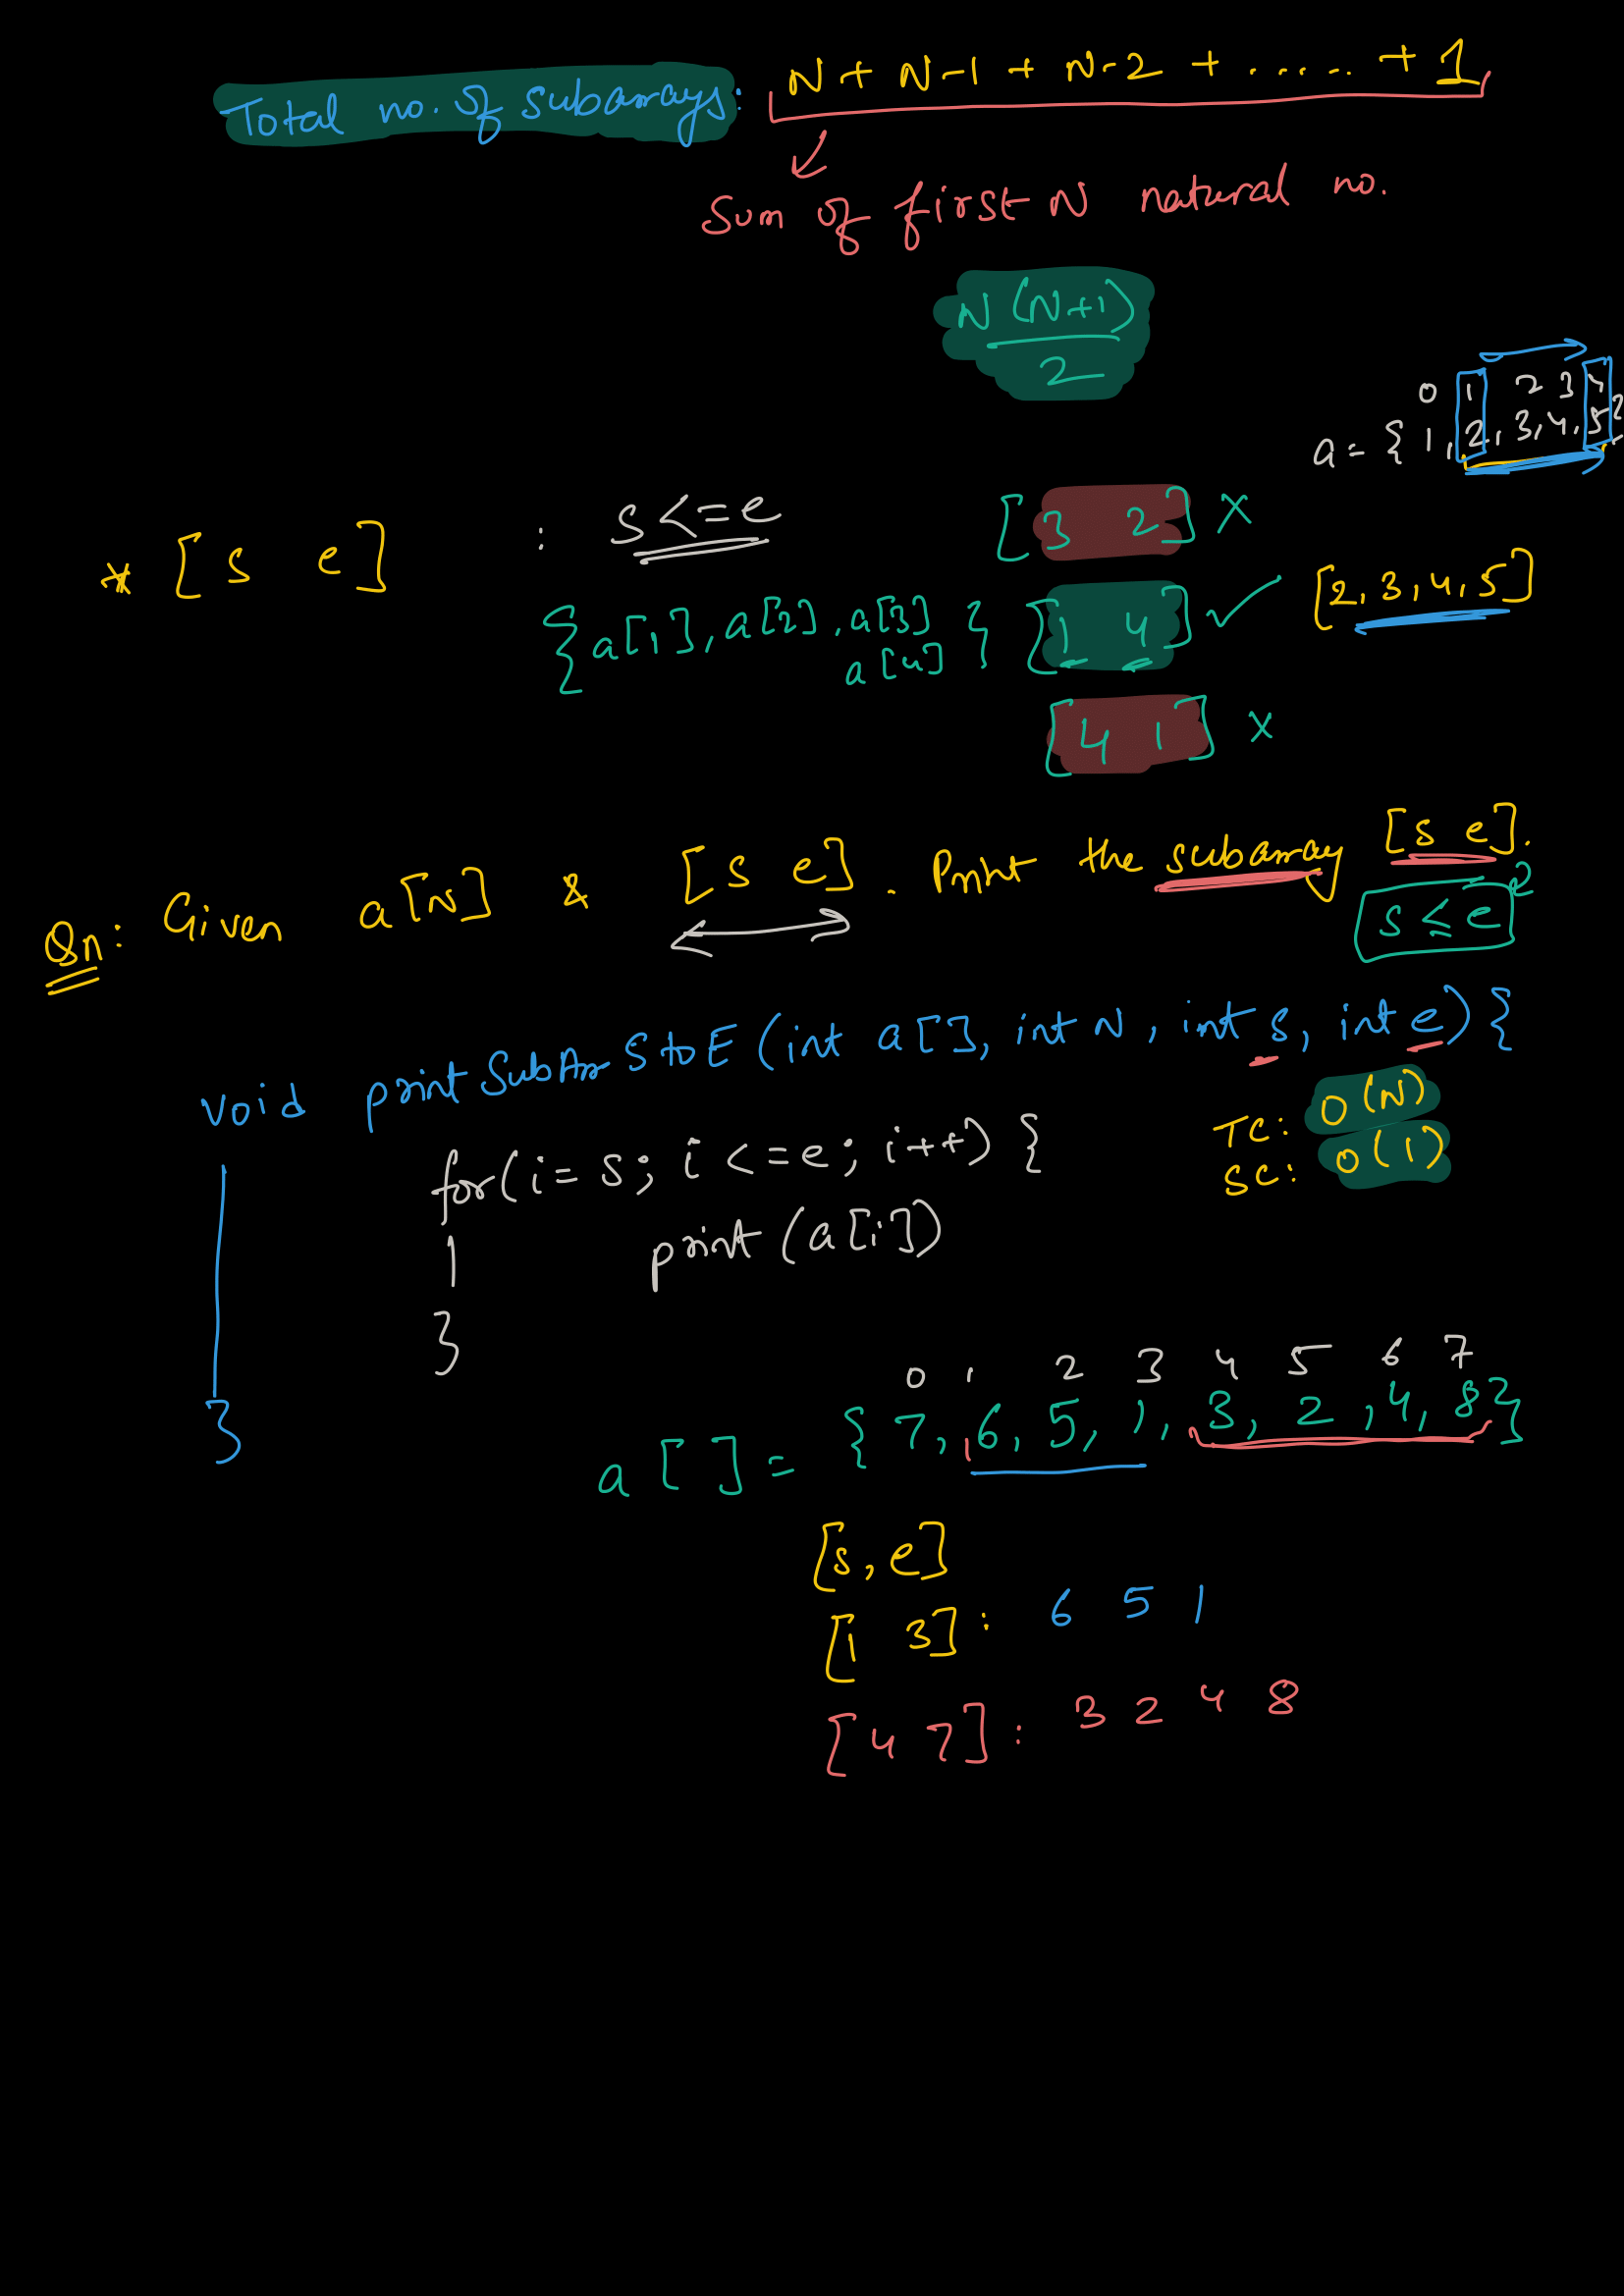 Total no. of subarrays: N + N-1 + N-2 + ..... + 1
Sum of first N natural no.
N (N+1)
2
0 1 2 3 4
a = { 1, 2, 3, 4, 5 }
* [ s e ] : s <= e [ 3 2 ] x
{ a[1], a[2], a[3] a[4] } [ 1 4 ] ✓ [2, 3, 4, 5]
[ 4 1 ] x
Qn: Given a[N] & [ s e ] . Print the subarray [ s e ].
s ≤ e
void printSubArrStoE (int a[], int N, int s, int e) {
TC: O(N)
SC: O(1)
for(i = s; i <= e; i++) {
print (a[i])
}
}
0 1 2 3 4 5 6 7
a [ ] = { 7, 6, 5, 1, 3, 2, 4, 8 }
[s, e]
[1 3] : 6 5 1
[4 7] : 3 2 4 8